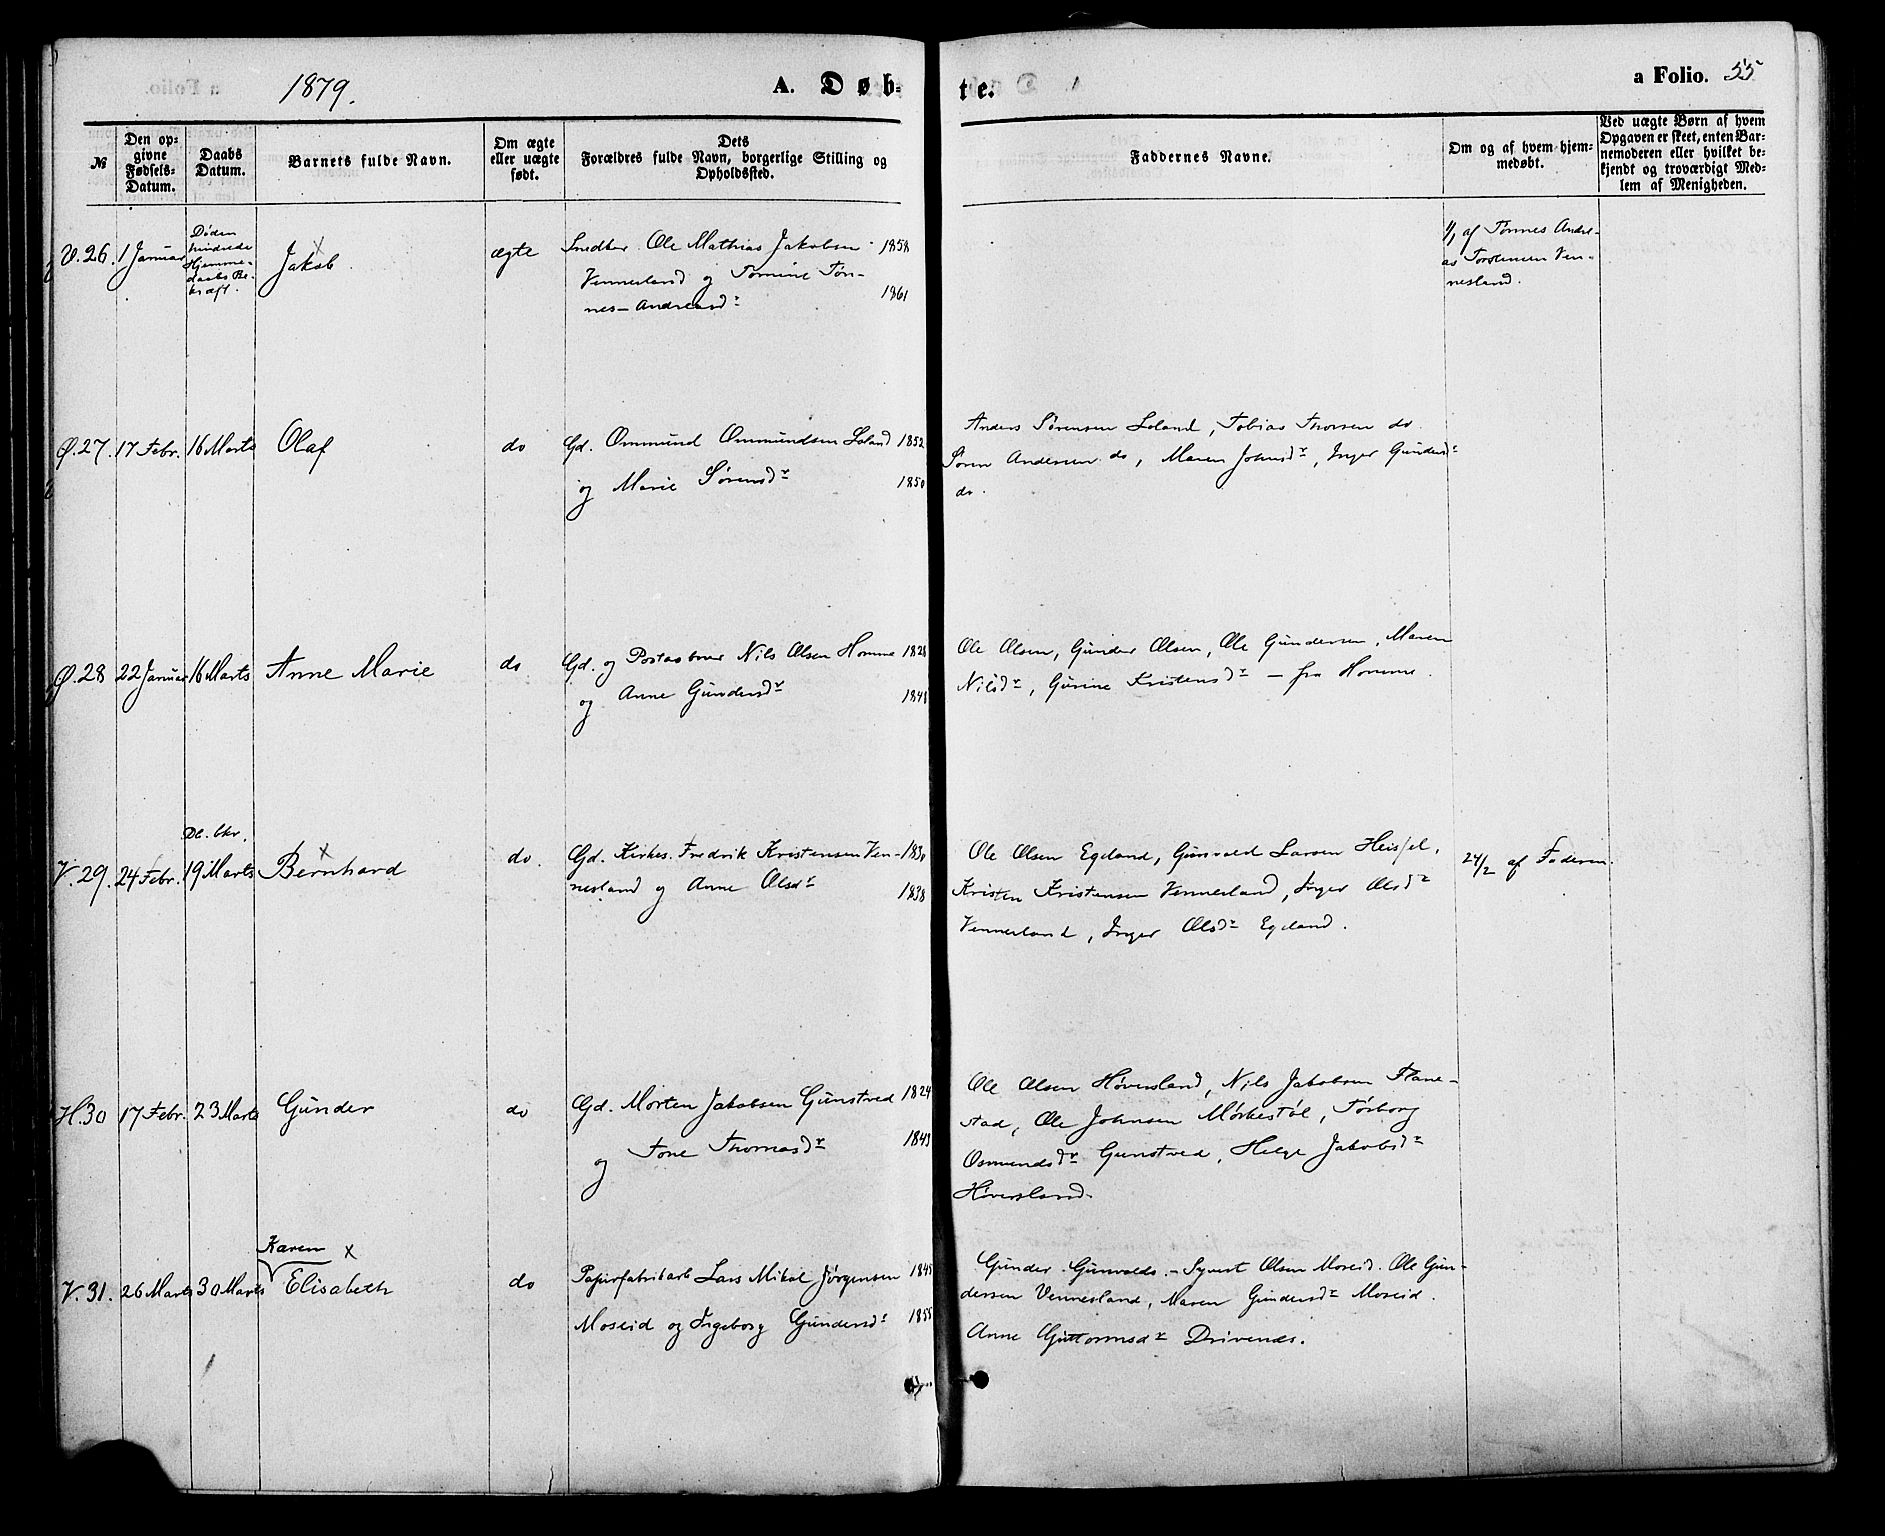 1879.
A. Døb-
te.
a Folio. 55
№
Den op-
givne
Fødsels-
Datum.
Daabs
Datum.
Barnets fulde Navn.
Om ægte
eller uægte
født.
Dets
Forældres fulde Navn, borgerlige Stilling og
Opholdssted.
Faddernes Navne.
Om og af hvem hjem-
medøbt.
Ved uægte Børn af hvem
Opgaven er skeet, enten Bar-
nemoderen eller hvilket be-
kjendt og troværdigt Med-
lem af Menigheden.
V. 26.
1 Januar
Døden
hindrede
Hjemme-
daabs Be-
kræft.
x
Jakob
ægte
Snedker Ole Mathias Jakobsen 1858
Vennesland og Tomine Tøn-
nes-Andreasdr 1861
1/1 af Tønnes Andre-
as Torstensen Ven-
nesland.
Ø. 27.
17 Febr.
16 Marts
Olaf
do
Gd. Ommund Ommundsen Loland 1852
og Marie Sørensdr 1850
Anders Sørensen Loland, Tobias Thorsen do.
Søren Andersen do, Maren Johnsdr, Inger Gundersdr
do.
Ø. 28
22 Januar
16 Marts
Anne Marie
do
Gd. og Postaabner Nils Olsen Homme 1828
og Anne Gundersdr 1848
Ole Olsen, Gunder Olsen, Ole Gundersen, Maren
Nilsdr, Gurine Kristensdr - fra Homme.
V. 29.
24 Febr.
19 Marts
x
Bernhard
do.
Gd. Kirkes. Fredrik Kristensen Ven- 1830
nesland og Anne Olsdr 1838
Ole Olsen Egeland, Gunvald Larsen Heisel,
Kristen Kristensen Vennesland, Inger Olsdr
Vennesland, Inger Olsdr Egeland.
24/2 af Faderen.
H. 30
17 Febr.
23 Marts
Gunder
do
Gd. Morten Jakobsen Gunstved 1824
og Tone Thomasdr 1843
Ole Olsen Høversland, Nils Jakobsen Flane-
stad, Ole Johnsen Mørkestøl, Torborg
Osmundsdr Gunstved, Helge Jakobsdr
Høversland.
V. 31.
26 Marts
30 Marts
Karen x
Elisabeth
do
Papirfabrikarb Lars Mikal Jørgensen 1845
Moseid og Ingeborg Gundersdr 1855
Gunder Gunvalds. - Syvert Olsen Moseid. Ole Gun-
dersen Vennesland, Maren Gundersdr Moseid.
Anne Guttormsdr Drivenes.